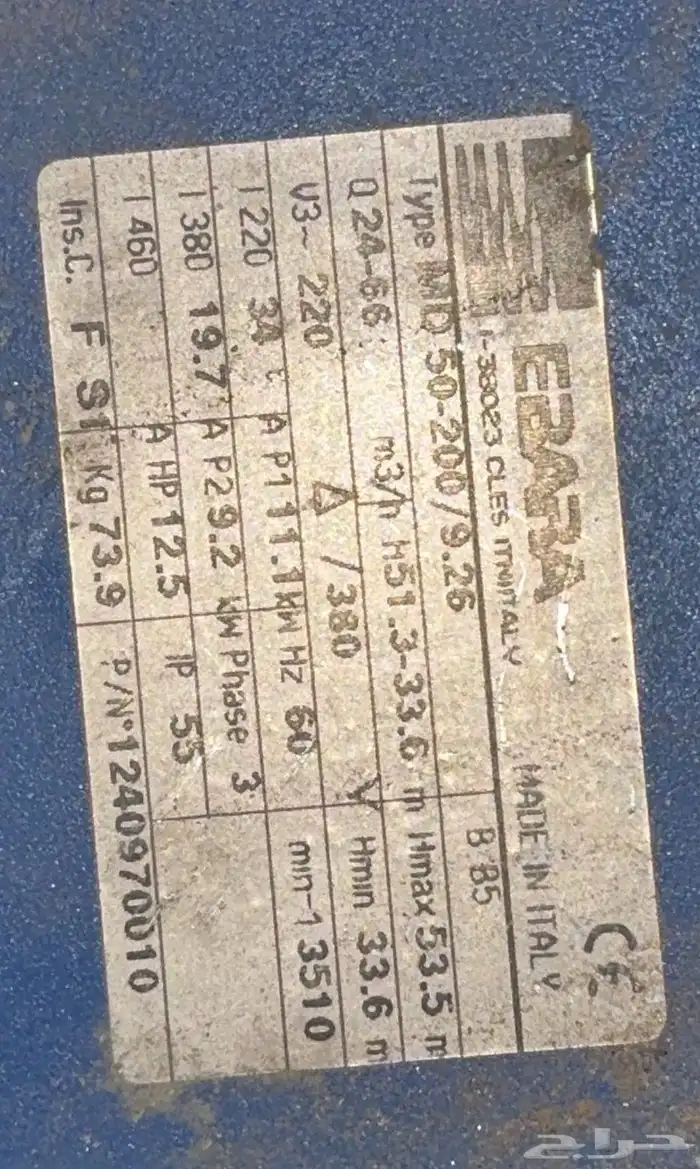 EBARA MADE IN ITALY CE
I-38023 CLES ITN ITALY
Type MD 50-200/9.26 B 85
Q 24-66 m3/h H 51.3-33.6 m Hmax 53.5 m
V3~ 220 Δ /380 Y Hmin 33.6 m
I 220 34 A P1 11.1 kW Hz 60 min-1 3510
I 380 19.7 A P2 9.2 kW Phase 3
I 460 A HP 12.5 IP 55
Ins.C. F S1 Kg 73.9 P/N° 1240970010
حراج